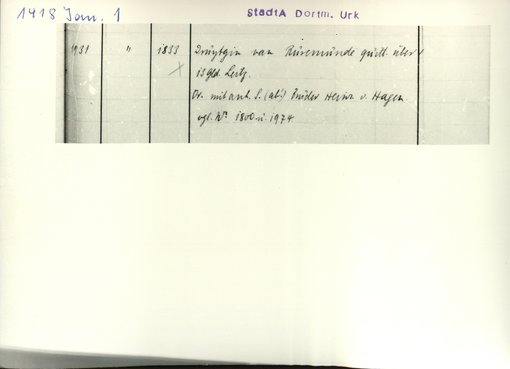 1418 Jan. 1
StadtA Dortm. Urk
1931 " 1833 van Rüremunde quitt. über
13 Gld. Leibz.
Or. mit anh. S. (ab) Bruder Heinr. v. Hagen
vgl. Nr 1800 u. 1974